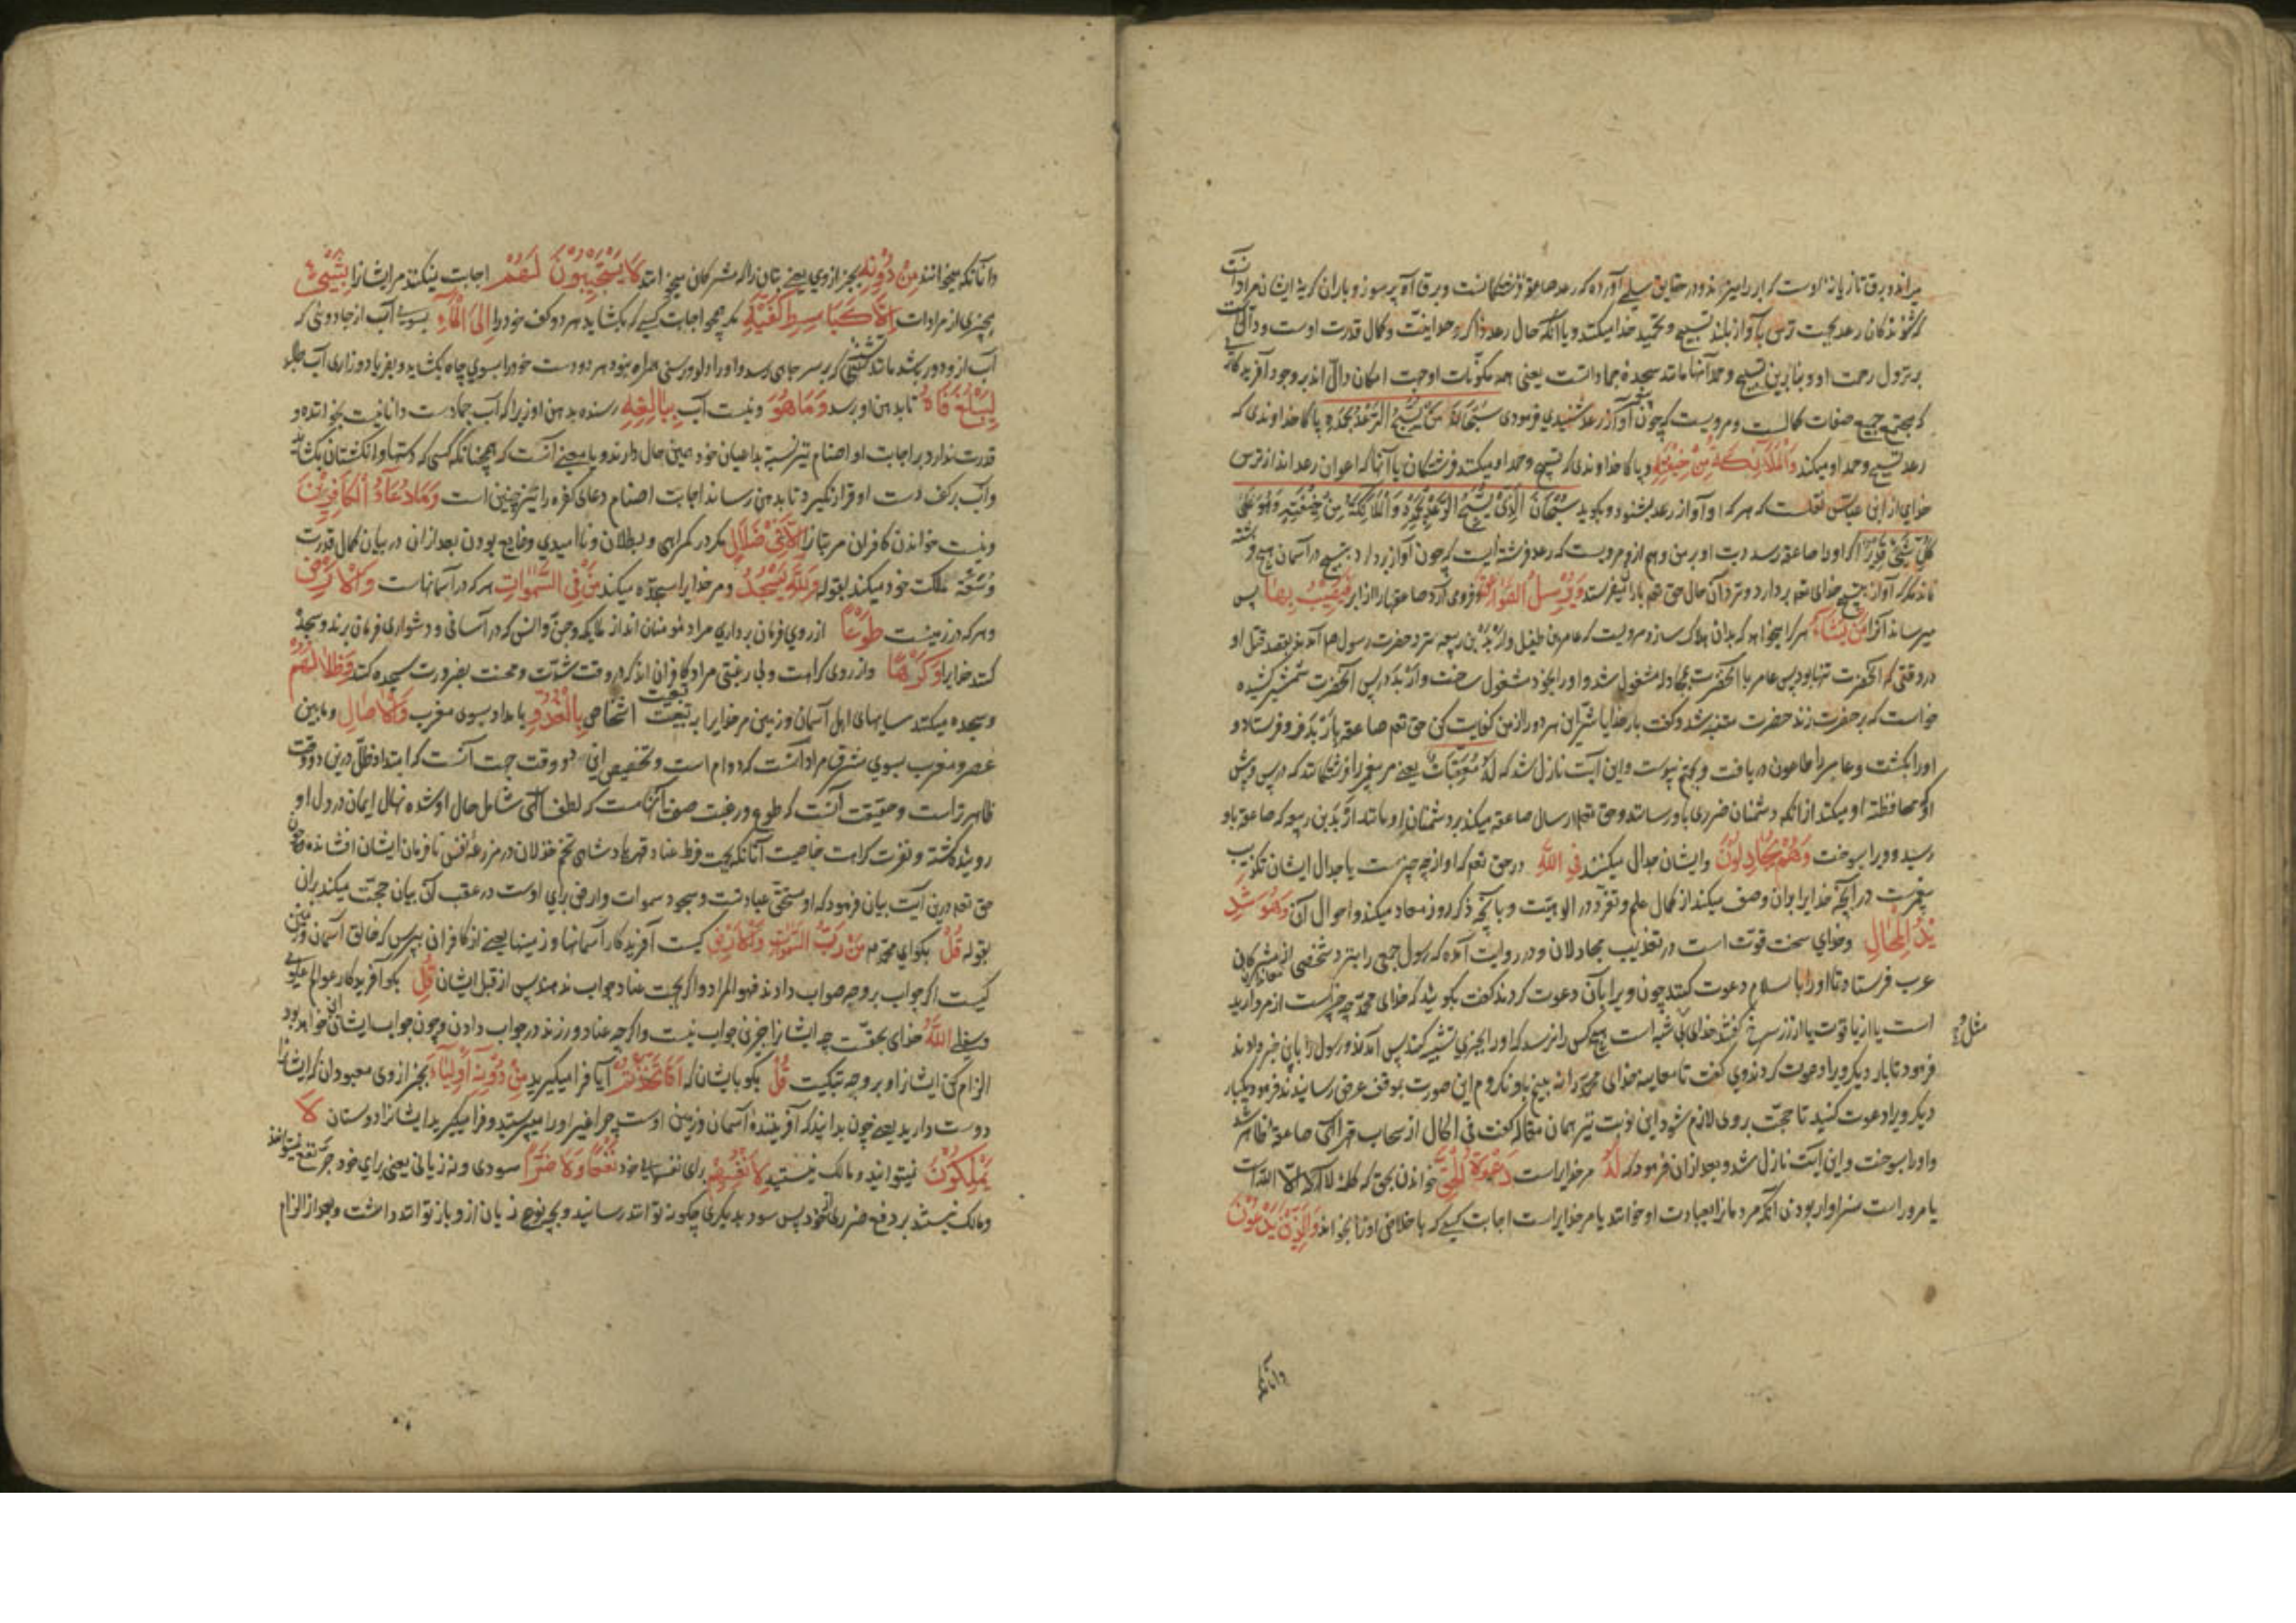 میراند و برق تازیانه اوست که ابر را میراند و در حقایق سلمی آورده که رعد صاعقه فرشتگانست و برق آه پرسوز و باران گریه ایشان مراد آنست
که شنوندگان رعد بجهت ترس بآواز بلند تسبیح و تحمید خدا میکنند و یا آنکه حال رعد ذاکر وحدانیت و کمال قدرت اوست و دالست
بر نزول رحمت او و بنابرین تسبیح و حمد آنها مانند سجده جماداتست یعنی همه مکونات اوجهت امکان دال اند بر وجود آفریدگاری
که مجتمع جمیع صفات کمالست و مرویست که چون پیغمبر آواز رعد شنیدی فرمودی سُبْحَانَ مَنْ يُسَبِّحُ الرَّعْدُ بِحَمْدِهِ پاکا خداوندی که
رعد تسبیح و حمد او میکند وَالْمَلَائِكَةُ مِنْ خِيفَتِهِ و پاکا خداوندی که تسبیح و حمد او میکنند فرشتگان یا آنها که اعوان رعد اند از ترس
خدای از ابن عباس نقلست که هر که او آواز رعد بشنود و بگوید سُبْحَانَ الَّذِي يُسَبِّحُ الرَّعْدُ بِحَمْدِهِ وَالْمَلَائِكَةُ مِنْ خِيفَتِهِ وَهُوَ عَلَى
كُلِّ شَيْءٍ قَدِيرٌ اگر او را صاعقه رسد دیت او بر من و هم ازو مرویست که رعد فرشته ایست که چون آواز بردارد بتسبیح در آسمان هیچ فرشته
نماند مگر که آواز بتسبیح خدای تعم بردارد و نزد آن حال حق تعم باران فرستد وَيُرْسِلُ الصَّوَاعِقَ و فرو می آرد صاعقها را از ابر فَيُصِيبُ بِهَا پس
میرساند آنرا مَنْ يَشَاءُ هر کرا میخواهد که بدان هلاک سازد مرویست که عامر بن طفیل و اربد بن ربیعه نزد حضرت رسول صا آمدند بقصد قتل او
در وقتی که آنحضرت تنها بود پس عامر با آنحضرت بمجادله مشغول شد و او را بخود مشغول ساخت و اربد در پس آنحضرت شمشیر کشیده
خواست که بر حضرت زند حضرت متنبه شد و گفت بار خدایا شر این هر دو را از من کفایت کن حق تعم صاعقه باربد فرو فرستاد و
او را بکشت و عامر را طاعون دریافت و بجهنم پیوست و این آیت نازل شد که لَهُ مُعَقِّبَاتٌ یعنی مر پیغمبر را فرشتگانند که در پس و پیش
او محافظه او میکنند از آنکه دشمنان ضرری باو رسانند و حق تعم ارسال صاعقه میکند بر دشمنان او مانند اربد بن ربیعه که صاعقه باو
رسید و ویرا بسوخت وَهُمْ يُجَادِلُونَ و ایشان جدال میکنند فِي اللَّهِ در حق تعم که او از چه چیز ست یا جدال ایشان تکذیب
پیغمبرست در آنچه خدایرا بدان وصف میکند از کمال علم و تفرد در الوهیت و بآنچه ذکر روز معاد میکند و احوال آن وَهُوَ شَدِ
يدُ الْمِحَالِ و خدای سخت قوت است در تعذیب مجادلان و در روایت آمده که رسول جمعی را بنزد شخصی از مشرکان
عرب فرستاد تا او را باسلام دعوت کنند چون ویرا بآن دعوت کردند گفت بگویید که خدای محمد چه چیز است از مروارید
است یا از یاقوت یا از زر سرخ گفتند خدای بی شبه است هیچ کس را نرسد که او را بچیزی تشبیه کند پس آمدند و رسول را باین خبر دادند
مثل و
فرمود تا بار دیگر ویرا دعوت کردند وی گفت تا معاینه خدای محمد را نه بینم باو نگروم این صورت بموقف عرض رسانیدند فرمود یکبار
دیگر ویرا دعوت کنید تا حجت بر وی لازم شود این نوبت نیز همان مقاله گفت فی الحال از سحاب قهر الهی صاعقه ظاهر شد
و او را بسوخت و این آیت نازل شد و بعد از ان فرمود که لَهُ مر خدایراست دَعْوَةُ الْحَقِّ خواندن بحق که کلمه لا اله الا اللّه است
یا مر وراست سزاوار بودن آنکه مردمانرا بعبادت او خوانند یا مر خدایراست اجابت کسی که باخلاص او را بخواند وَالَّذِينَ يَدْعُونَ
وآنانکه
وآنانکه میخوانند مِنْ دُونِهِ بجز از وی یعنی بتان را که مشرکان میخوانند لَا يَسْتَجِيبُونَ لَهُمْ اجابت نمیکنند مر ایشانرا بِشَيْءٍ
بچیزی از مرادات إِلَّا كَبَاسِطِ كَفَّيْهِ مگر همچو اجابت کسی که بکشاید هر دو کف خود را إِلَى الْمَاءِ بسوی آب از جا دوئی که
آب از و دور بشد مانند تشنه که بر سر چاهی رسد و او را دلو و رسنی همراه نبود هر دو دست خود را بسوی چاه بکشاید و بفریاد و زاری آب طلبد
لِيَبْلُغَ فَاهُ تا بدهن او برسد وَمَا هُوَ و نیست آب بِبَالِغِهِ رسنده بدهن او زیرا که آب جمادست دانا نیست بخواننده و
قدرت ندارد بر اجابت او اصنام نیز نسبة بداعیان خود همین حال دارند و یا معنی آنست که همچنانکه کسی که دستها و انگشتان بکشاید
و آب بر کف دست او قرار نگیرد تا بدهن رساند اجابت اصنام دعای کفره را نیز چنین است وَمَا دُعَاءُ الْكَافِرِينَ
و نیست خواندن کافران مر بتانرا إِلَّا فِي ضَلَالٍ مگر در گمراهی و بطلان و نا امیدی و ضایع بودن بعد از ان در بیان کمال قدرت
و سعة مملکت خود میکند بقوله وَلِلَّهِ يَسْجُدُ و مر خدایرا سجده میکند مَنْ فِي السَّمَوَاتِ هر که در آسمانهاست وَالْأَرْضِ
و هر که در زمینست طَوْعًا از روی فرمان برداری مراد مومنان اند از ملایکه و جن و انس که در آسانی و دشواری فرمان برند و سجده
کنند خدایرا وَكَرْهًا و از روی کراهت و بی رغبتی مراد کافران اند که در وقت شدت و محنت بضرورت سجده کنند وَظِلَالُهُمْ
و سجده میکنند سایهای اهل آسمان و زمین مر خدایرا بر تبعیت اشخاص بِالْغُدُوِّ بامداد بسوی مغرب وَالْآصَالِ و ما بین
عصر و مغرب بسوی مشرق مراد آنست که دوام است و تخصیص این دو وقت جهت آنست که ابتداد ظل درین دو وقت
ظاهر تر است و حقیقت آنست که طوع و رغبت صفت آنهاست که لطف الهی شامل حال او شده نهال ایمان در دل او
روینده گشته و نفرت کراهت خاصیت آنانکه بجهت فرط عناد قهرمان پادشاهی تخم خذلان در مزرعه نفس نافرمان ایشان افشانده و چون
حق تعم درین آیت بیان فرمود که او مستحق عبادتست و سجود سموات و ارض برای اوست در عقب آن بیان حجت میکند بر آن
بقوله قُلْ بگو ای محمد مَنْ رَبُّ السَّمَوَاتِ وَالْأَرْضِ کیست آفریدگار آسمانها و زمینها یعنی از کافران بپرس که خالق آسمان و زمین
کیست اگر جواب بر وجه صواب دادند فهو المراد و اگر بجهت عناد جواب ندهند پس از قبل ایشان قُلِ بگو آفریدگار عوالم علوی
و سفلی اللَّهُ خدای بحقست چه ایشانرا جز این جواب نیست و اگرچه عناد ورزند در جواب دادن و چون جواب ایشان این خواهد بود
الزام کن ایشانرا و بر وجه تبکیت قُلْ بگو با ایشان که أَفَاتَّخَذْتُمْ آیا فرا میگیرید مِنْ دُونِهِ أَوْلِيَاءَ بجز از وی معبودان که ایشانرا
دوست دارید یعنی چون بدانید که آفریننده آسمان و زمین اوست چرا غیر او را میپرستید و فرا میگیرید ایشانرا دوستان لَا
يَمْلِكُونَ نیتوانید و مالک نیستید لِأَنْفُسِهِمْ برای نفسهای خود نَفْعًا وَلَا ضَرًّا سودی و نه زیانی یعنی برای خود جر نفع نمیتوانند
و مالک نیستند بر دفع ضرری از خود پس سود بدیگری چگونه توانند رسانید و بچه نوع زیان از و باز توانند داشت و بعد از الزام